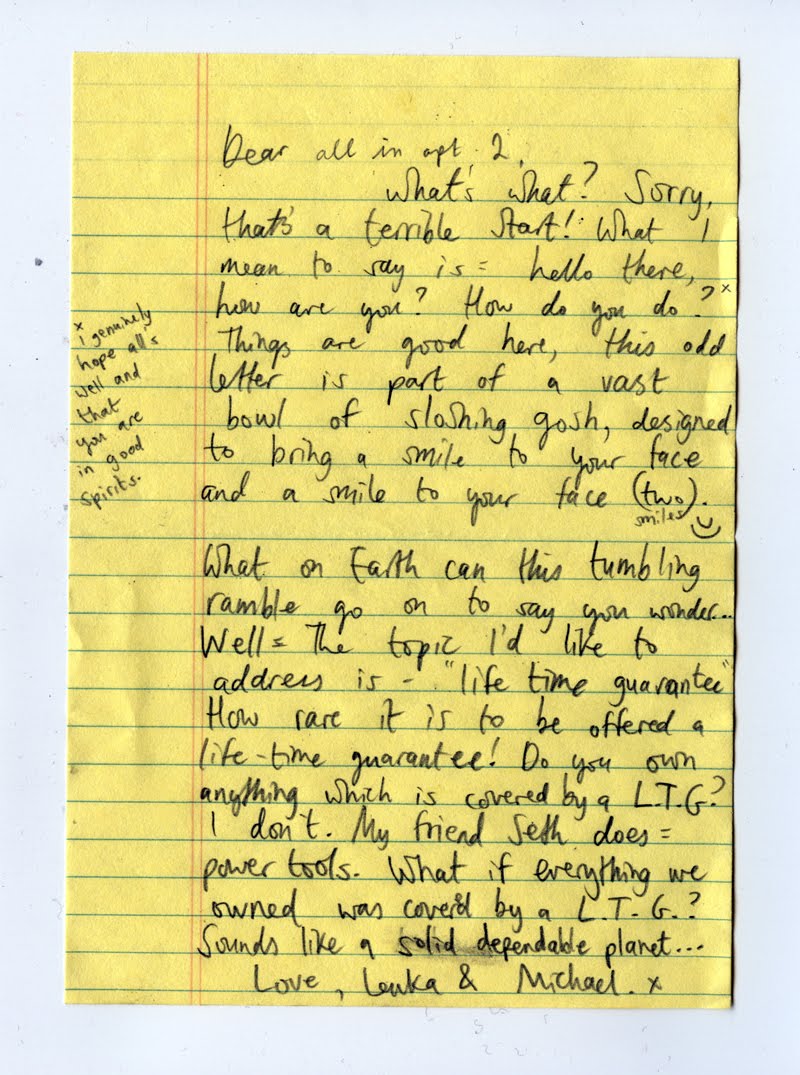 Dear all in apt. 2.
What's what? Sorry,
that's a terrible start! What I
mean to say is = hello there,
how are you? How do you do?x
Things are good here, this odd
letter is part of a vast
bowl of sloshing gosh, designed
to bring a smile to your face
and a smile to your face (two).
smiles
What on Earth can this tumbling
ramble go on to say you wonder...
Well = The topic I'd like to
address is - "life time guarantee"
How rare it is to be offered a
life-time guarantee! Do you own
anything which is covered by a L.T.G?
I don't. My friend Seth does =
power tools. What if everything we
owned was cover'd by a L.T.G.?
Sounds like a solid dependable planet...
Love, Lenka & Michael. x
x I genuinely
hope all's
well and
that
you are
in good
spirits.